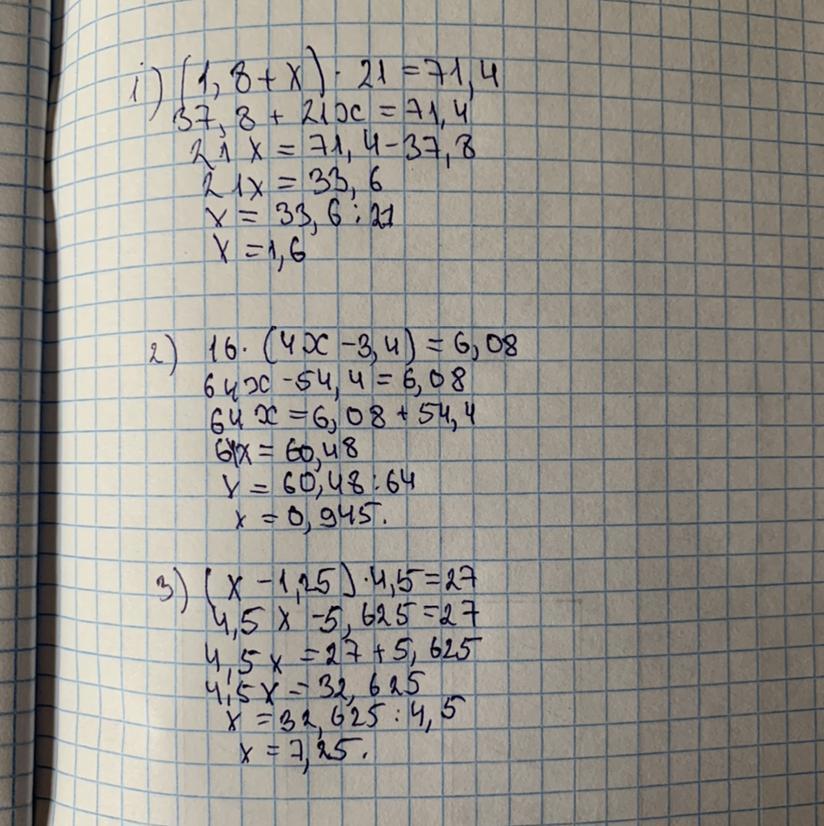 1) (1,8+x)·21=71,4
37,8+21x=71,4
21x=71,4-37,8
21x=33,6
x=33,6:21
x=1,6
2) 16·(4x-3,4)=6,08
64x-54,4=6,08
64x=6,08+54,4
64x=60,48
x=60,48:64
x=0,945.
3) (x-1,25)·4,5=27
4,5x-5,625=27
4,5x=27+5,625
4,5x=32,625
x=32,625:4,5
x=7,25.